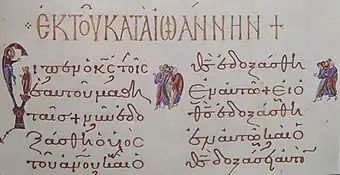 ΕΚ ΤΟΥ ΚΑΤΑ ΙΩΑΝΝΗΝ +
Εἶπεν ὁ κς τοῖς
ἑαυτοῦ μαθη
ταῖς + νῦν ἐδο
ξάσθη ὁ υἱὸς
τοῦ ἀνου καὶ ὁ
θς ἐδοξάσθη
ἐν αὐτῶ + εἰ ὁ
θς ἐδοξάσθη
ἐν αὐτῶ καὶ ὁ
θς δοξάσει αὐτὸν